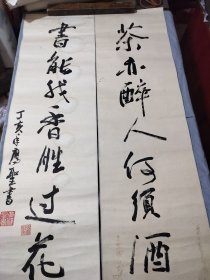 茶亦醉人何須酒
書能我香胜過花
丁亥年書